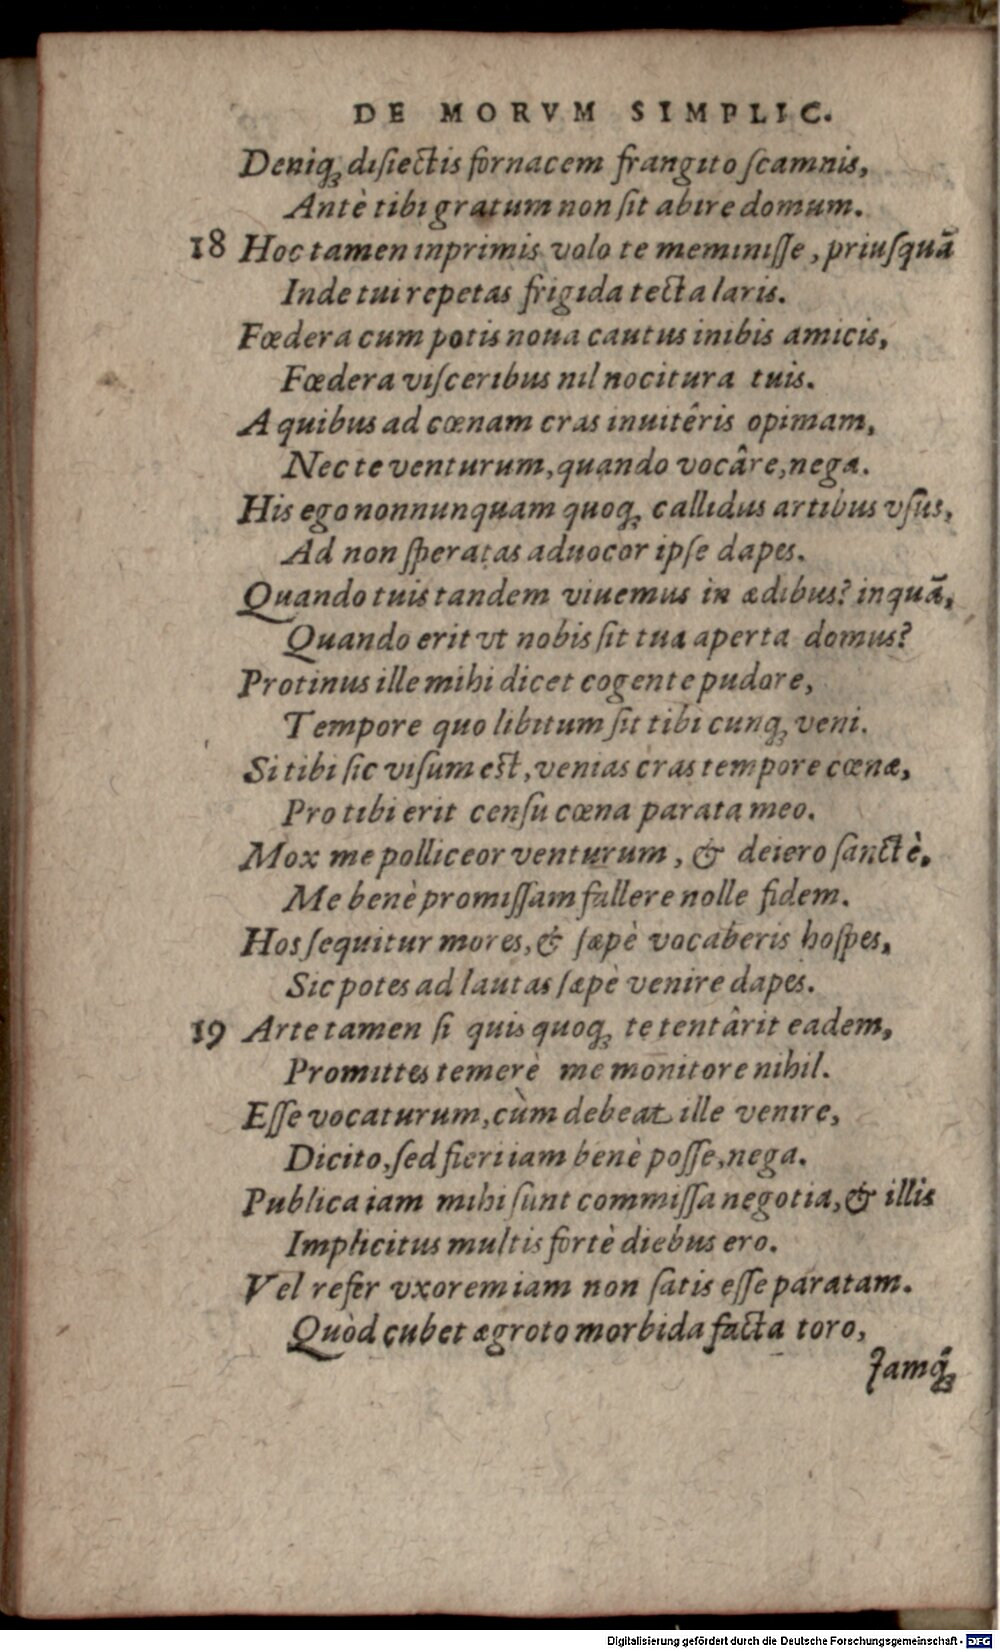 DE MORVM SIMPLIC.
Deniqꝫ disiectis fornacem frangito ſcamnis,
Antè tibi gratum non ſit abire domum.
18 Hoc tamen inprimis volo te meminiſſe, priuſquã
Inde tui repetas frigida tecta laris.
Fœdera cum potis noua cautus inibis amicis,
Fœdera viſceribus nil nocitura tuis.
A quibus ad cœnam cras inuitêris opimam,
Nec te venturum, quando vocâre, nega.
His ego nonnunquam quoqꝫ callidus artibus vſus,
Ad non ſperatas aduocor ipſe dapes.
Quando tuis tandem viuemus in ædibus? inquã,
Quando erit vt nobis ſit tua aperta domus?
Protinus ille mihi dicet cogente pudore,
Tempore quo libitum ſit tibi cunqꝫ veni.
Si tibi ſic viſum eſt, venias cras tempore cœnæ,
Pro tibi erit cenſu cœna parata meo.
Mox me polliceor venturum, & deiero ſanctè.
Me benè promiſſam fallere nolle fidem.
Hos ſequitur mores, & ſæpè vocaberis hoſpes,
Sic potes ad lautas ſæpè venire dapes.
19 Arte tamen ſi quis quoqꝫ te tentârit eadem,
Promittes temerè me monitore nihil.
Eſſe vocaturum, cùm debeat ille venire,
Dicito, ſed fieri iam benè poſſe, nega.
Publica iam mihi ſunt commiſſa negotia, & illis
Implicitus multis fortè diebus ero.
Vel refer vxorem iam non ſatis eſſe paratam.
Quòd cubet ægroto morbida facta toro,
Jamqꝫ
Digitalisierung gefördert durch die Deutsche Forschungsgemeinschaft - DFG